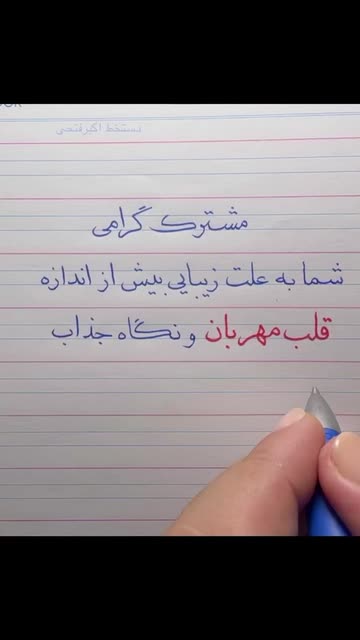 دستخط اکبرفتحی
مشترک گرامی
شما به علت زیبایی بیش از اندازه
قلب مهربان و نگاه جذاب